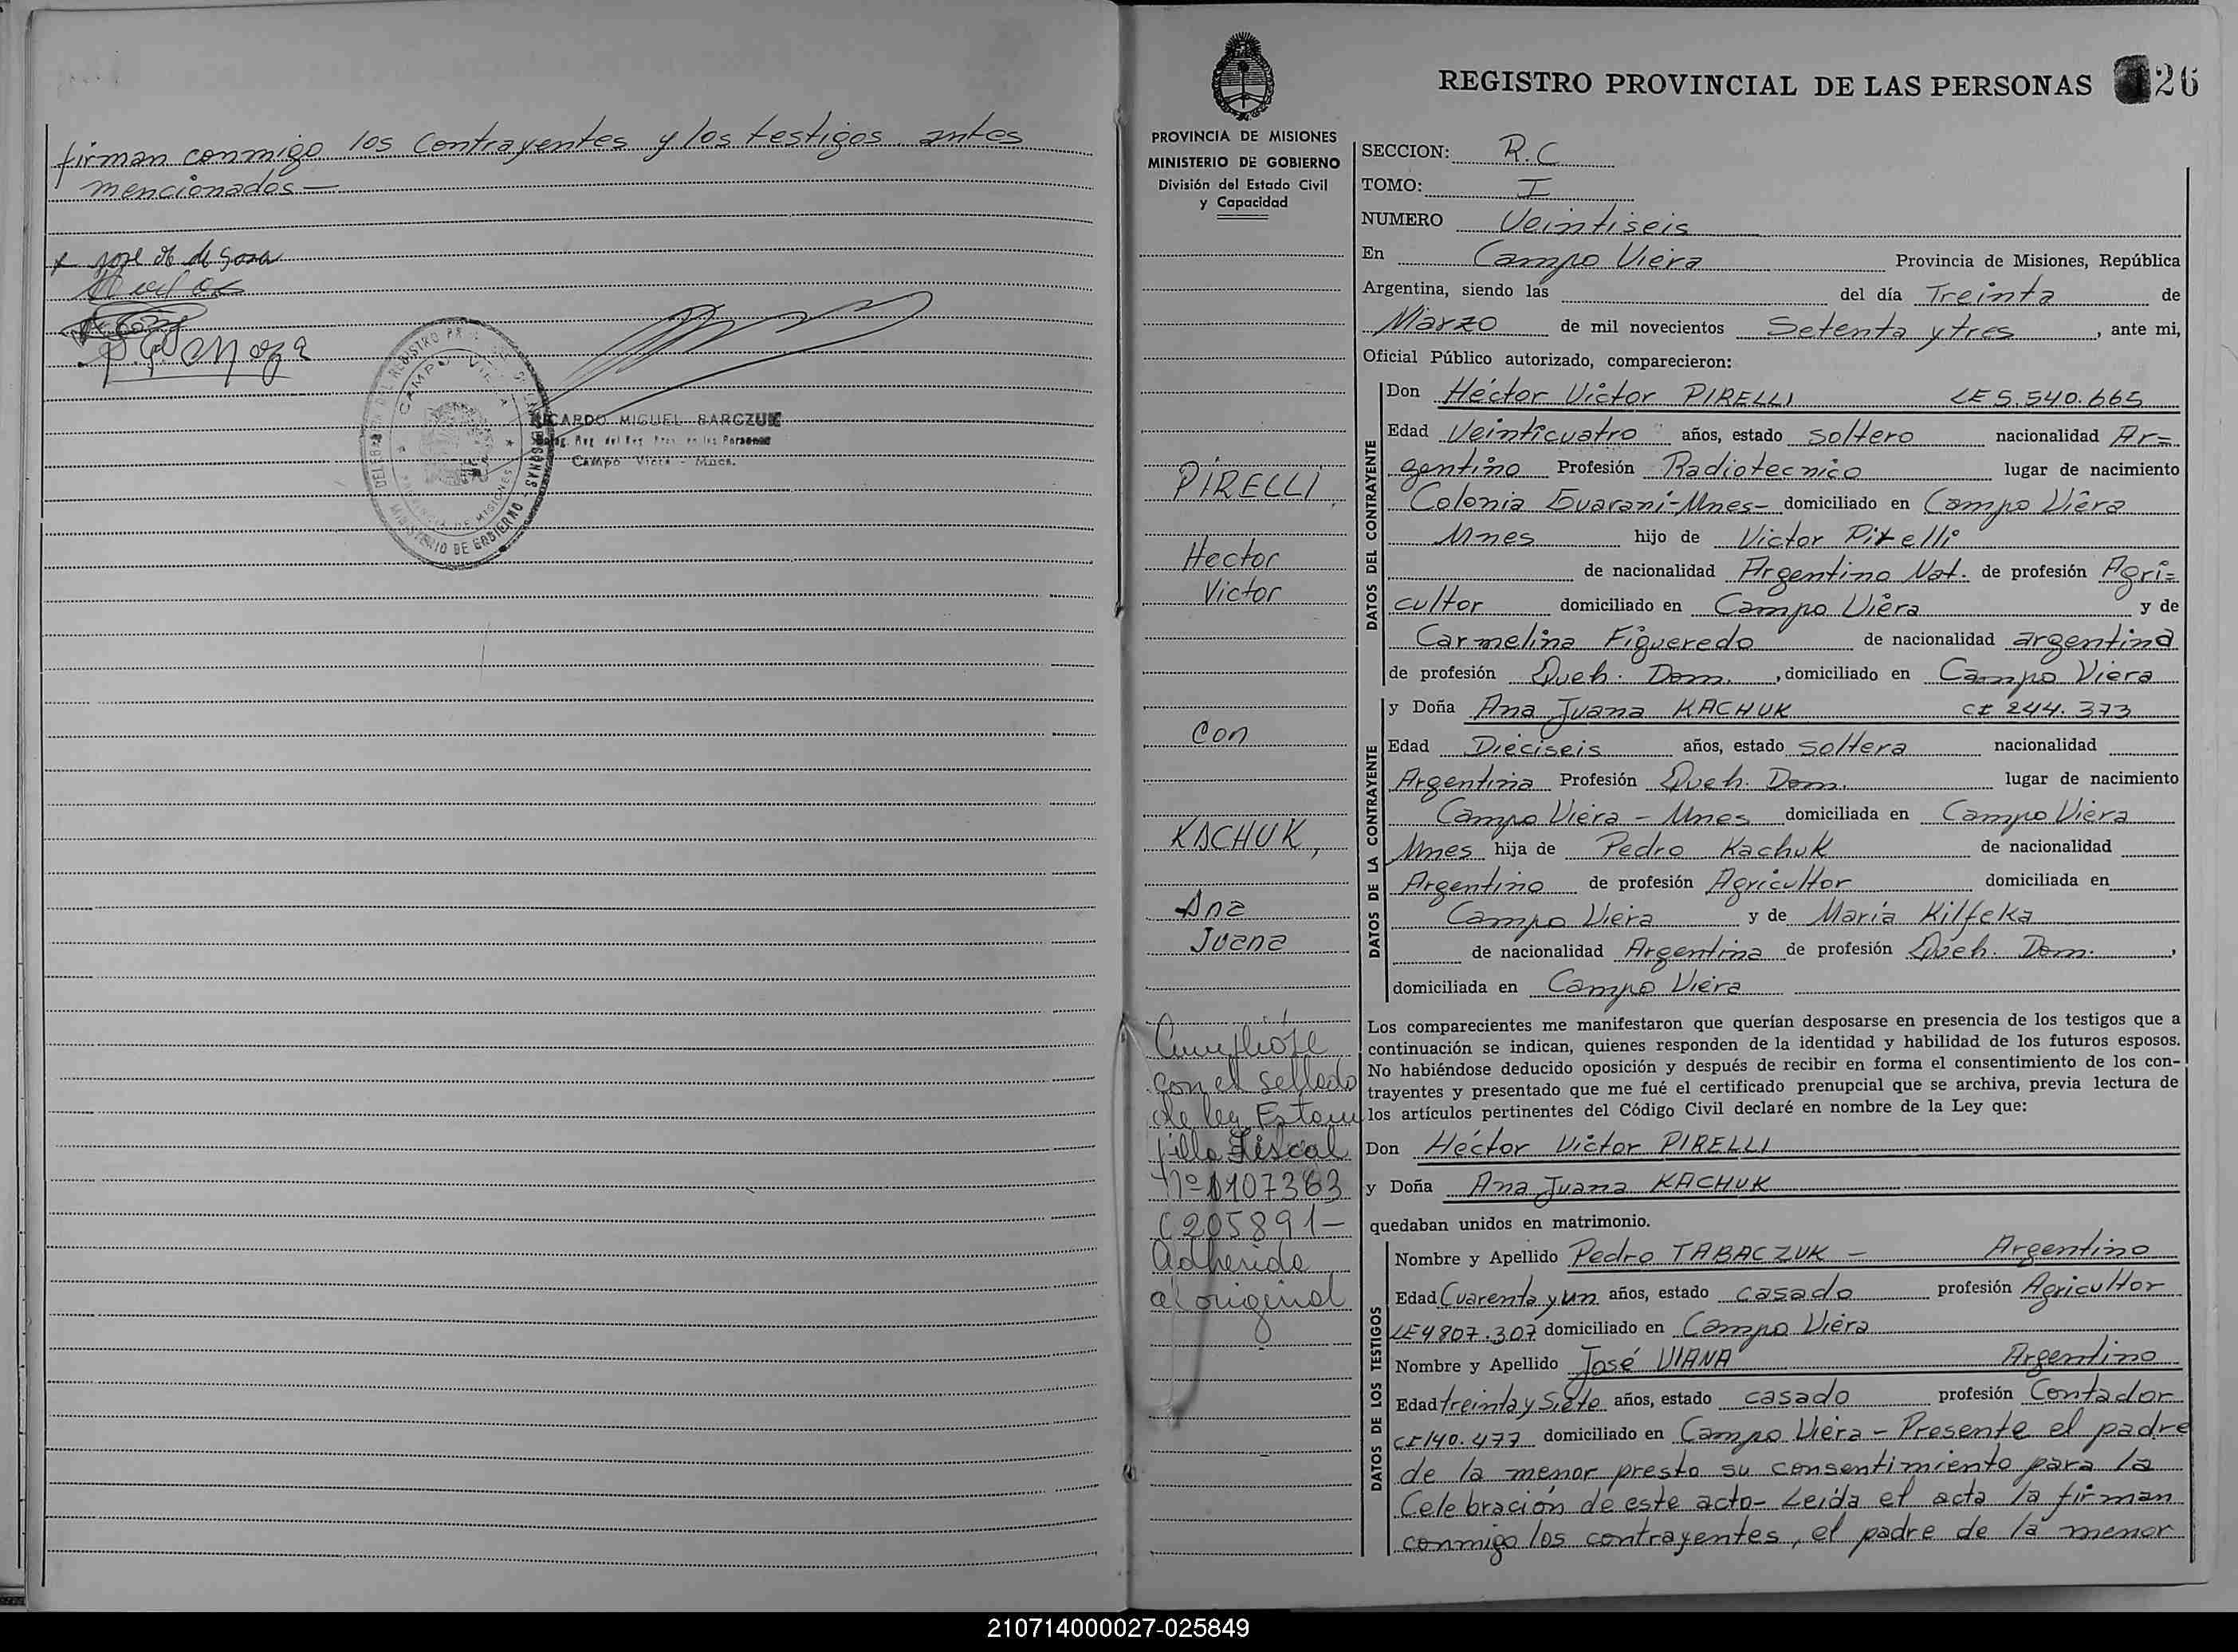 firman conmigo los Contrayentes y los testigos antes
mencionados—
x José de Sosa
RICARDO MIGUEL BARCZUK
Campo Viera - Mnes.
CAMPO VIERA
MINISTERIO DE GOBIERNO
REGISTRO PROVINCIAL DE LAS PERSONAS 26
PROVINCIA DE MISIONES
MINISTERIO DE GOBIERNO
División del Estado Civil
y Capacidad
PIRELLI
Hector
Victor
Con
KACHUK,
Ana
Juana
con el sellado
de ley Estam
pilla Fiscal
C 205891—
Adherida
al original
SECCION: R.C
TOMO: I
NUMERO Veintiseis
En Campo Viera Provincia de Misiones, República
Argentina, siendo las del día Treinta de
Marzo de mil novecientos Setenta y tres, ante mi,
Oficial Público autorizado, comparecieron:
DATOS DEL CONTRAYENTE
Don Héctor Victor PIRELLI LE 5.540.665
Edad Veinticuatro años, estado soltero nacionalidad Ar=
gentino Profesión Radiotecnico lugar de nacimiento
Colonia Guarani-Mnes- domiciliado en Campo Viera
Mnes hijo de Victor Pirelli
de nacionalidad Argentino Nat. de profesión Agri=
cultor domiciliado en Campo Viera y de
Carmelina Figueredo de nacionalidad argentina
de profesión Queh. Dom., domiciliado en Campo Viera
DATOS DE LA CONTRAYENTE
y Doña Ana Juana KACHUK CI 244.373
Edad Dieciseis años, estado soltera nacionalidad
Argentina Profesión Queh. Dom. lugar de nacimiento
Campo Viera - Mnes domiciliada en Campo Viera
Mnes hija de Pedro Kachuk de nacionalidad
Argentino de profesión Agricultor domiciliada en
Campo Viera y de María Kilfeka
de nacionalidad Argentina de profesión Queh. Dom.,
domiciliada en Campo Viera
Los comparecientes me manifestaron que querían desposarse en presencia de los testigos que a
continuación se indican, quienes responden de la identidad y habilidad de los futuros esposos.
No habiéndose deducido oposición y después de recibir en forma el consentimiento de los con-
trayentes y presentado que me fué el certificado prenupcial que se archiva, previa lectura de
los artículos pertinentes del Código Civil declaré en nombre de la Ley que:
Don Héctor Victor PIRELLI
y Doña Ana Juana KACHUK
quedaban unidos en matrimonio.
DATOS DE LOS TESTIGOS
Nombre y Apellido Pedro TABACZUK - Argentino
Edad Cuarenta y un años, estado casado profesión Agricultor
LE4807.307 domiciliado en Campo Viera
Nombre y Apellido José VIANA Argentino
Edad treinta y Siete años, estado casado profesión Contador
CI 140.477 domiciliado en Campo Viera - Presente el padre
de la menor presto su consentimiento para la
Celebración de este acto- Leida el acta la firman
conmigo los contrayentes, el padre de la menor
210714000027-025849